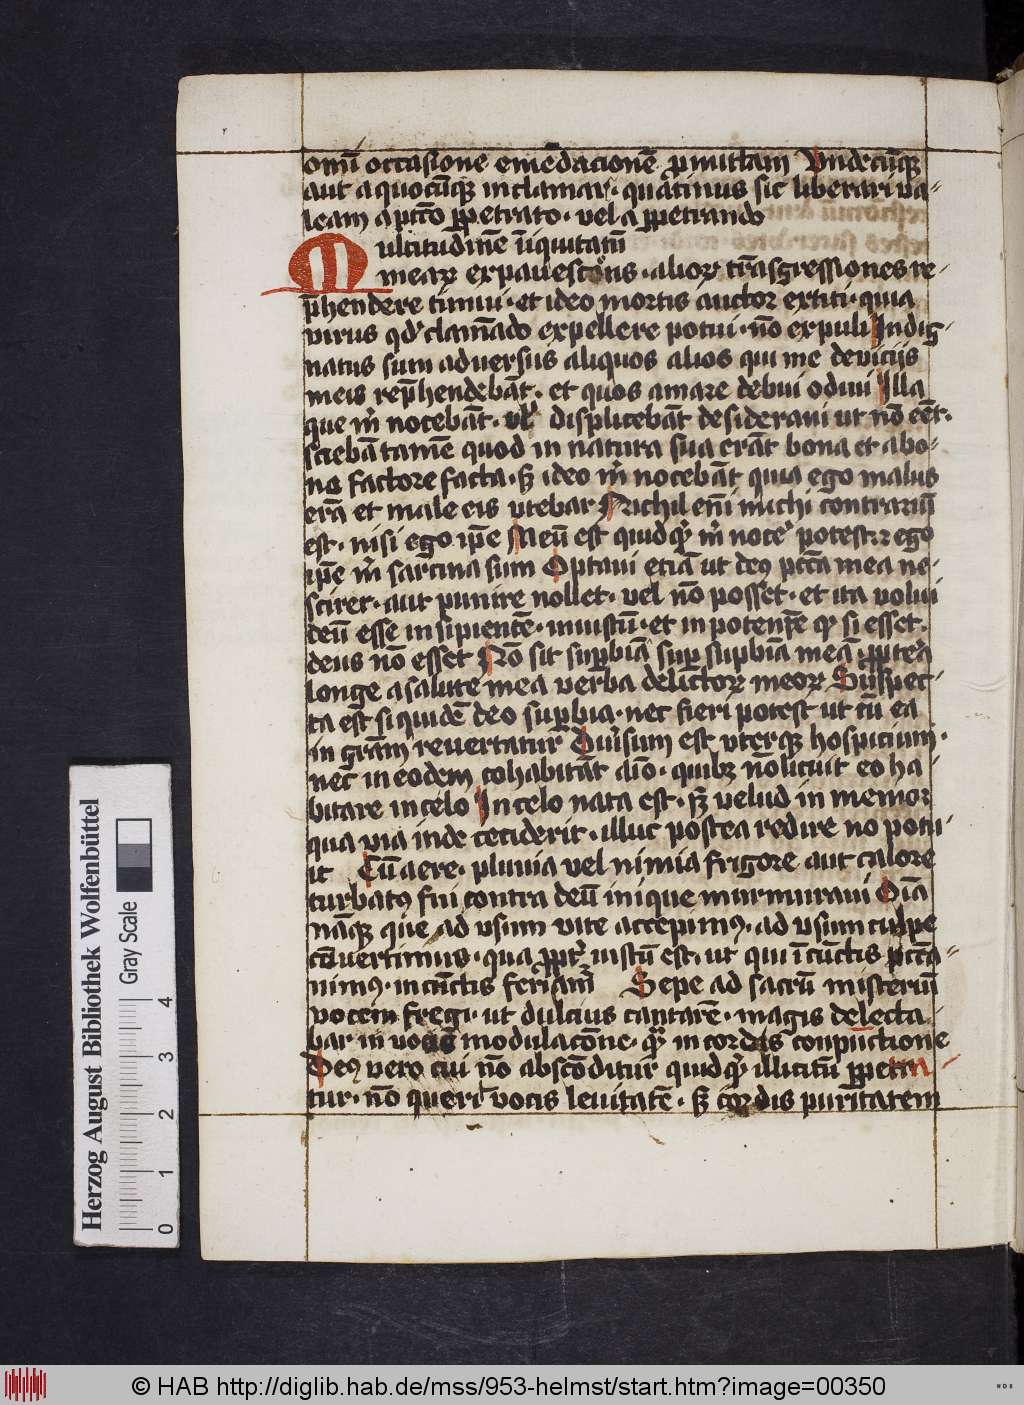 omī occasione emēdacionē pmittam Vndecūqꝫ
aut a quocūqꝫ inclamar · quatinus sic liberari va-
leam a pctō ꝑpetrato · vel a ꝑpetrando
Multitudinē iniquitatū
mearꝝ expauescēs · aliorꝝ trāsgressiones re-
p̄hendere timui · et ideo mortis auctor extiti · quia
virus qd' clamādo expellere potui · nō expuli Indig-
natus sum aduersus aliquos alios qui me de viciis
meis rep̄hendebāt · et quos amare debui odiui Illa
que m̄ nocebāt · vl' displicebāt desideraui ut nō eēt ·
sciebā tamē quod in natura sua erāt bona et a bo-
no factore facta · sꝫ ideo m̄ nocebāt quia ego malus
erā et male eis vtebar Nichil em̄ michi contrariū
est · nisi ego ip̄e Meū est quidqꝫ m̄ noce' potest · ego
ip̄e m̄ sarcina sum Optaui etiā ut deꝰ pctā mea ne-
sciret · aut punire nollet · vel nō posset · et ita volui
deū esse insipientē · iniustū · et inpotentē qꝫ si esset ·
deus nō esset Nō sit suꝑbiā suꝑ suꝑbiā meā ꝓpterea
longe a salute mea verba delictorꝝ meorꝝ Suspec-
ta est siquidē deo suꝑbia · nec fieri potest ut cū ea
in grām reuertatur Diuisum est vterqꝫ hospicium ·
nec in eodem cohabitāt aīo · quibꝫ nō licuit eo ha-
bitare in celo In celo nata est · sꝫ velud inmemor
qua via inde ceciderit · illuc postea redire no potu-
it Cū aere · pluuia vel nimia frigore aut calore
turbatꝰ fui contra deū inique murmuraui Oīa
nāqꝫ que ad vsum vite accepimꝰ · ad vsum culpe
cōuertimus · qua ꝓpt' iustū est · ut qui ī cūctis pctā-
nimꝰ · in cūctis feriam' Sepe ad sacrū misteriū
vocem fregi · ut dulcius cantarē · magis delecta
bar in vocis modulacōne · qꝫ in cordis conpūctione
Deꝰ vero cui nō abscōditur quidqꝫ illicitū ꝑpetra-
tur · nō querit vocis leuitatē · sꝫ cordis puritatem
Herzog August Bibliothek Wolfenbüttel
Gray Scale
0 1 2 3 4
© HAB http://diglib.hab.de/mss/953-helmst/start.htm?image=00350